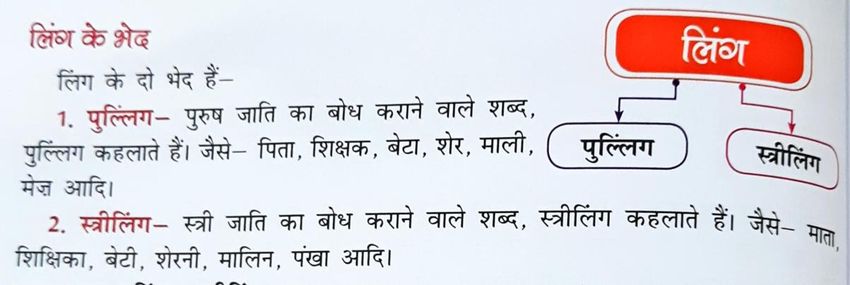 लिंग के भेद
लिंग
लिंग के दो भेद हैं–
1. पुल्लिंग– पुरुष जाति का बोध कराने वाले शब्द,
पुल्लिंग कहलाते हैं। जैसे– पिता, शिक्षक, बेटा, शेर, माली,
मेज़ आदि।
पुल्लिंग
स्त्रीलिंग
2. स्त्रीलिंग– स्त्री जाति का बोध कराने वाले शब्द, स्त्रीलिंग कहलाते हैं। जैसे– माता,
शिक्षिका, बेटी, शेरनी, मालिन, पंखा आदि।